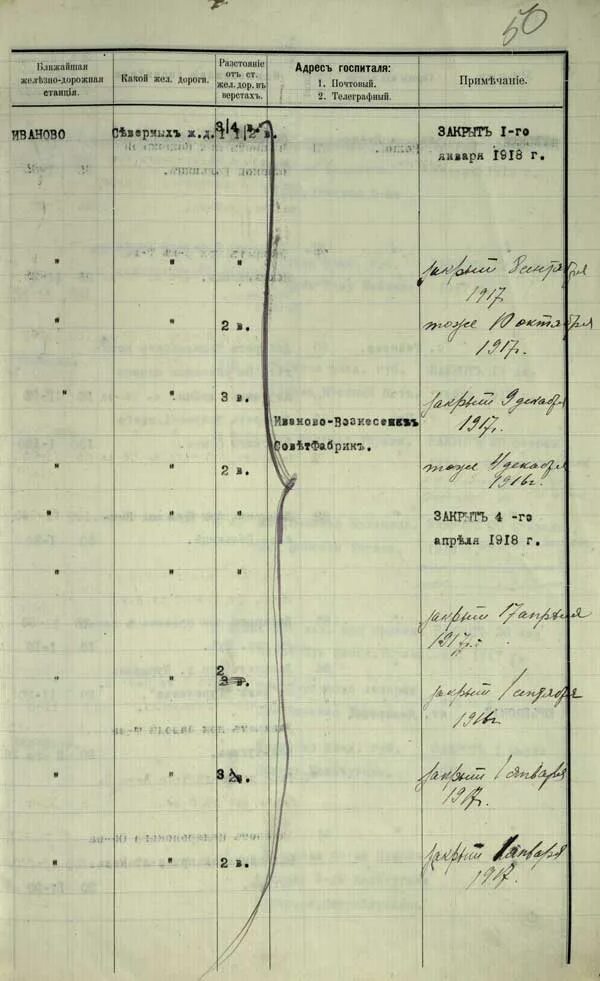 50
Ближайшая
желѣзно-дорожная
станція.
Какой жел. дороги.
Разстояніе
отъ ст.
жел.дор. въ
верстахъ.
Адресъ госпиталя:
1. Почтовый.
2. Телеграфный.
Примѣчаніе.
ИВАНОВО Сѣверныхъ ж.д. ЗАКРЫТЪ 1-го
января 1918 г.
" " " закрытъ
1917
" " 2 в. тоже 10 октября
1917г.
" " 3 в. закрытъ 9 декабря
1917г.
Иваново-Вознесенкъ
СовѣтФабрик.
" " 2 в. тоже 4 декабря
1916г.
" " " ЗАКРЫТЪ 4 -го
апрѣля 1918 г.
" " "
закрытъ 17 апрѣля
1917г.
" " 2 в. закрытъ 1
1916г.
" " закрытъ 1 января
1917г.
" " 2 в. закрытъ 1 января
1917г.